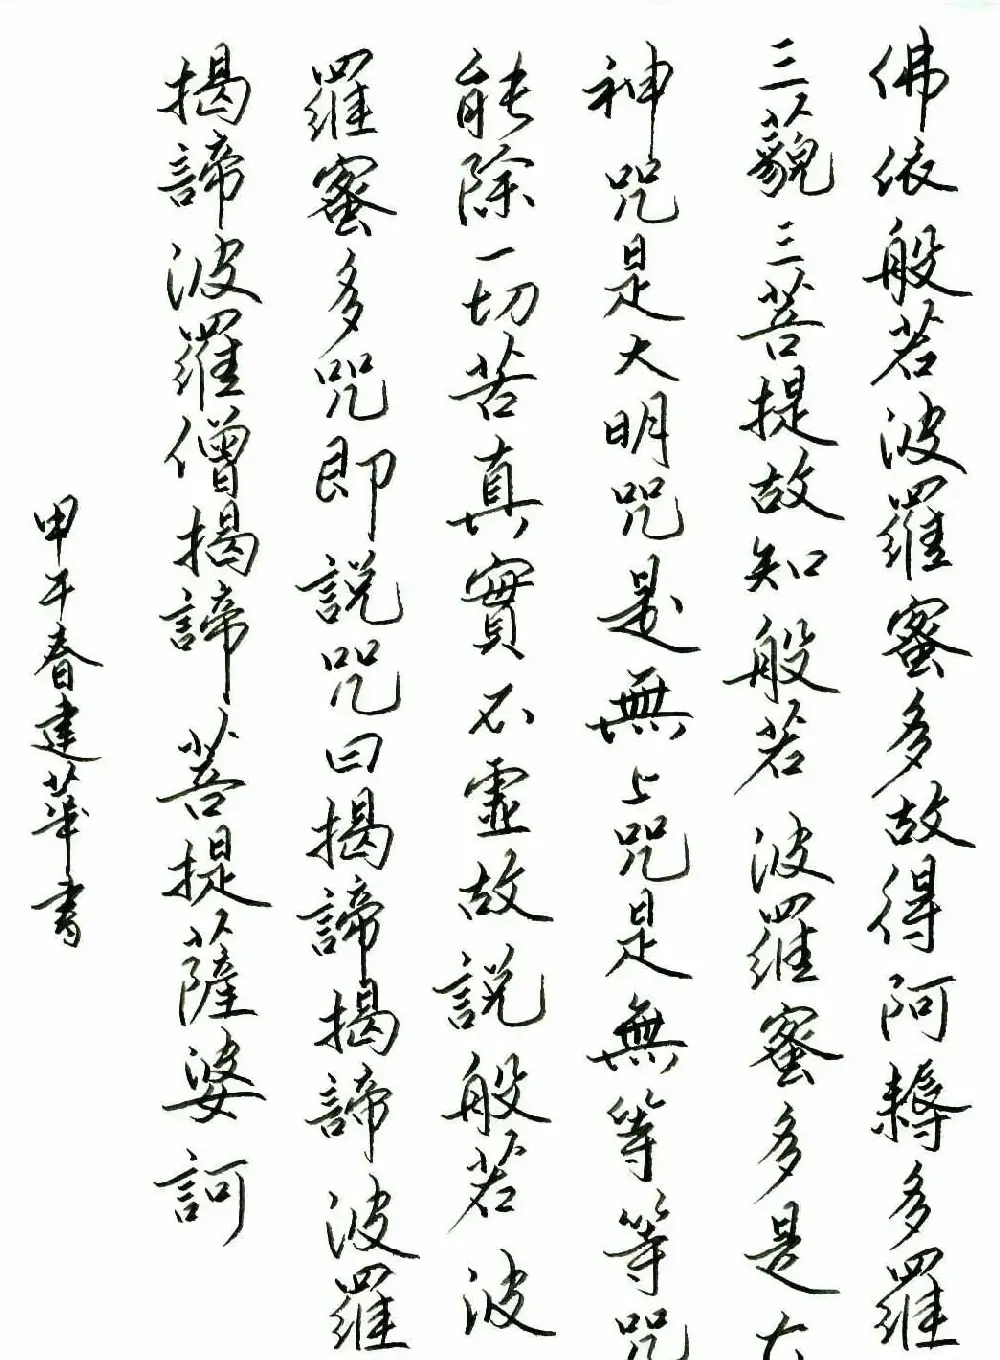 佛依般若波羅蜜多故得阿耨多羅
三藐三菩提故知般若波羅蜜多是大
神咒是大明咒是無上咒是無等等咒
能除一切苦真實不虛故說般若波
羅蜜多咒即說咒曰揭諦揭諦波羅
揭諦波羅僧揭諦菩提薩婆訶
甲午春建華書